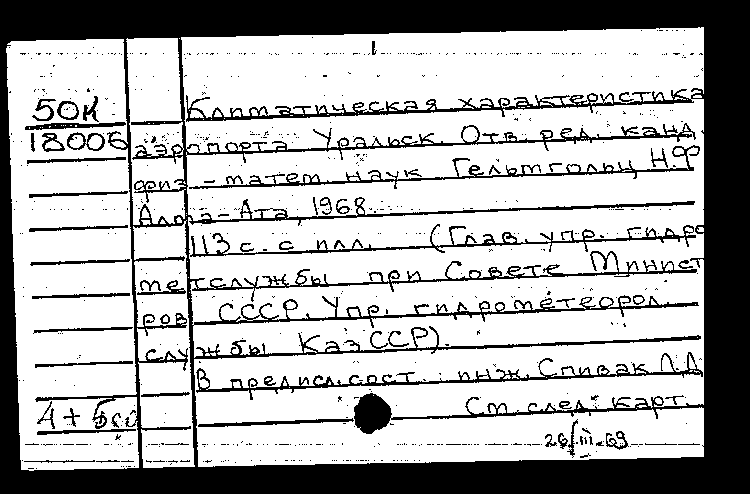 50К
18006
Климатическая характеристика
аэропорта Уральск. Отв. ред. канд.
физ-матем. наук Гельмгольц Н.Ф
Алма-Ата, 1968.
113 с. с илл. (Глав. упр. гидро
метслужбы при Совете Минист
ров СССР. Упр. гидрометеорол.
службы КазССР).
В предисл. сост. инж. Спивак Л.Д
4+5
См. след. карт.
26/III-69